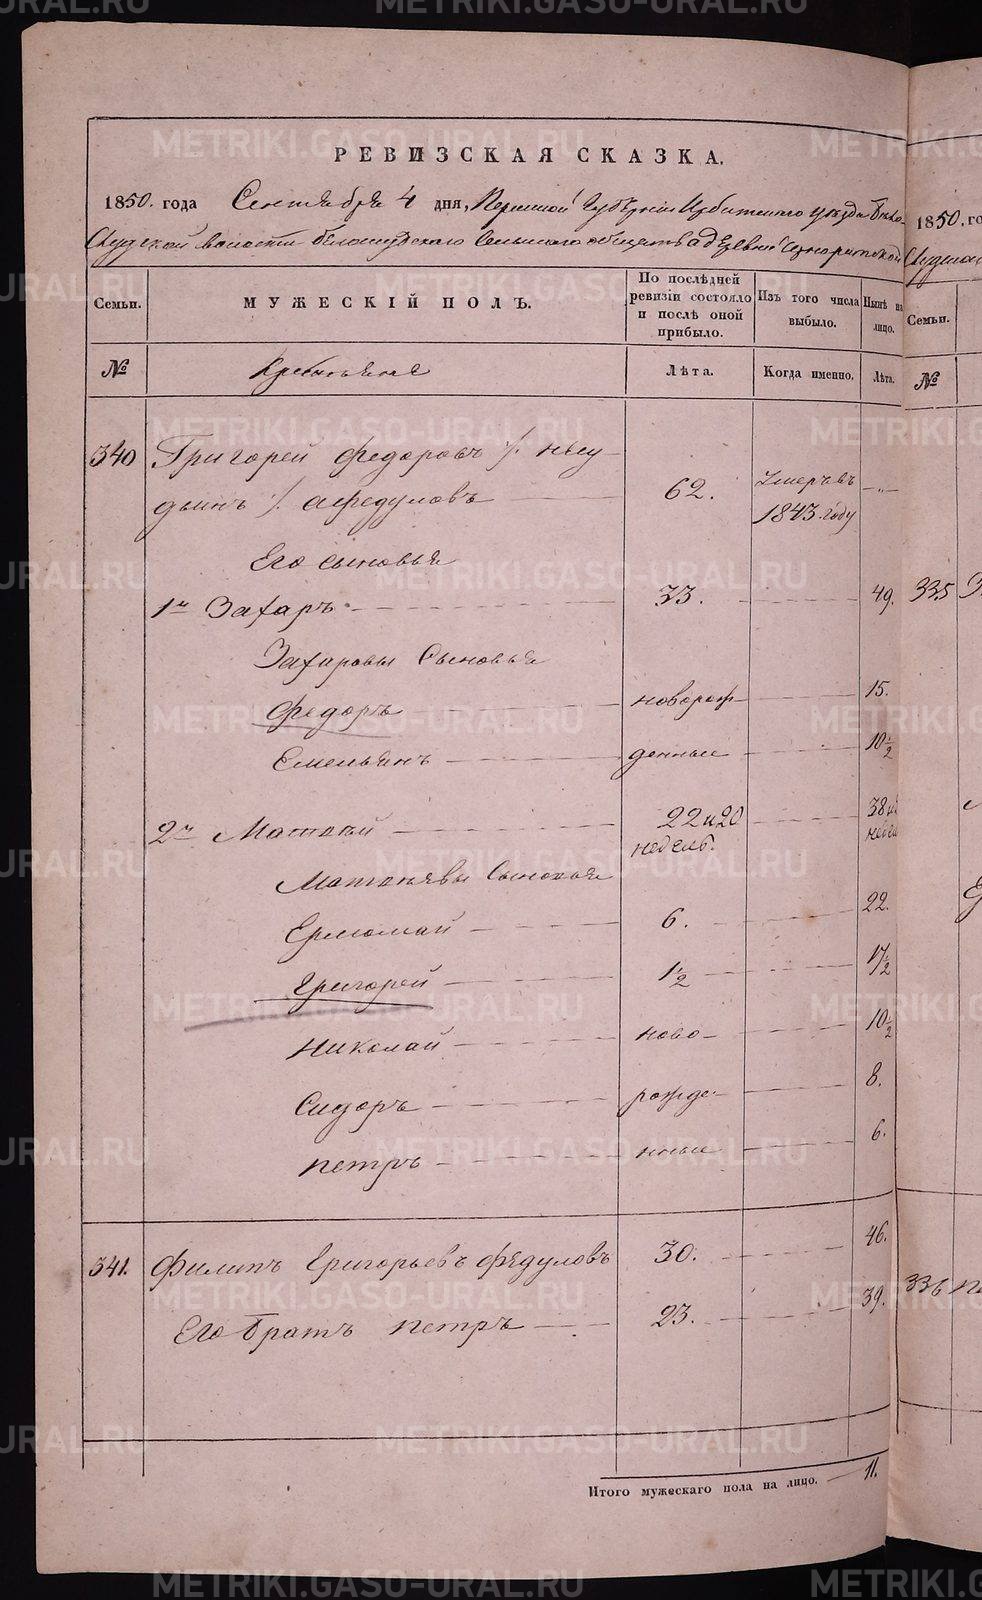 РЕВИЗСКАЯ СКАЗКА.
1850. года Сентября 4 дня, Пермской Губернии Ирбитского уезда Бело-
слудской волости Белослудского Сельского общества деревни
Семьи. МУЖЕСКІЙ ПОЛЪ. По послѣдней ревизіи состояло и послѣ оной прибыло. Изъ того числа выбыло. Нынѣ на лицо.
№ Крестьяне Лѣта. Когда именно. Лѣта.
340 Григорей Федоровъ
Афедуловъ 62. Умеръ въ 1843. году — „ —
Его сыновья
1й Захаръ 33. 49.
Захаровы Сыновья
Федоръ новорож- 15.
Емельянъ денные 10½
2й Матвѣй 22 и 20 недель. 38 и
Матвѣявы Сыновья
Ермолай 6. 22.
Григорей 1½ 17½
Николай ново- 10½
Сидоръ рожде- 8.
Петръ нные 6.
341. Филипъ Григорьевъ Фядуловъ 30. 46.
Его братъ Петръ 23. 39.
Итого мужескаго пола на лицо. 11.
1850. го
Семьи.
№
335
336
METRIKI.GASO-URAL.RU